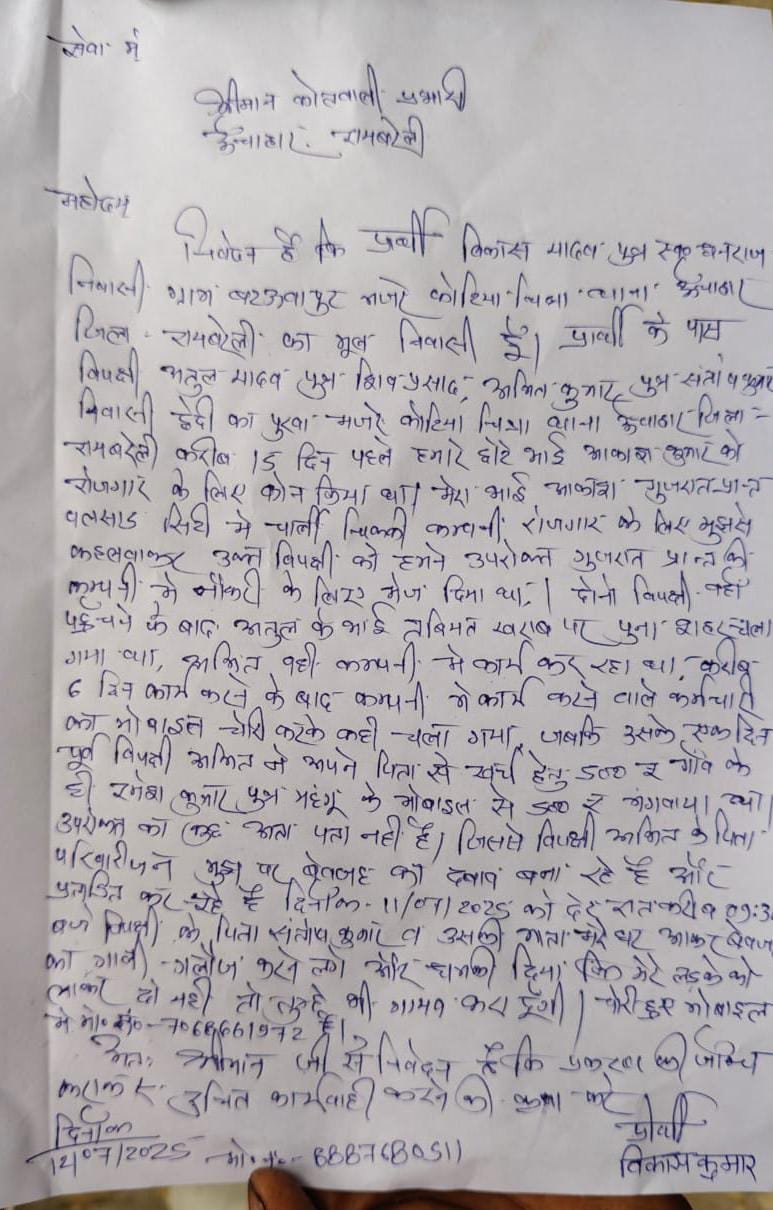 सेवा में
श्रीमान कोतवाली प्रभारी
ऊँचाहार. रायबरेली
महोदय
निवेदन है कि प्रार्थी विकास यादव पुत्र स्व० धनराज
निवासी ग्राम बरऊवापुर मजरे कोटिया चित्रा थाना ऊँचाहार
जिला - रायबरेली का मूल निवासी हूँ। प्रार्थी के पास
विपक्षी अतुल यादव पुत्र शिव प्रसाद, अमित कुमार पुत्र संतोष कुमार
निवासी हेदी का पुरवा मजरे कोटिया चित्रा थाना ऊँचाहार जिला -
रायबरेली करीब 15 दिन पहले हमारे छोटे भाई आकाश कुमार को
रोजगार के लिए फोन किया था। मेरा भाई आकाश गुजरात प्रान्त
वलसाड सिटी मे चार्ली चिक्की कम्पनी रोजगार के लिए मुझसे
कहलवाकर उक्त विपक्षी को हमने उपरोक्त गुजरात प्रान्त की
कम्पनी मे नौकरी के लिए भेज दिया था। दोनो विपक्षी वहाँ
पहुँचने के बाद अतुल के भाई तबियत खराब पर पुना शहर चला
गया था, अमित वही कम्पनी मे कार्य कर रहा था, करीब
6 दिन कार्य करने के बाद कम्पनी मे कार्य करने वाले कर्मचारी
का मोबाइल चोरी करके कही चला गया, जबकि उसके एक दिन
पूर्व विपक्षी अमित ने अपने पिता से खर्च हेतु 500 रु गाँव के
ही रमेश कुमार पुत्र महंगू के मोबाइल से 500 रु मंगवाया था।
उपरोक्त का कुछ अता पता नही है। जिससे विपक्षी अमित के पिता
परिवारीजन मुझ पर बेवजह का दबाव बना रहे है और
प्रताडित कर रहे है दिनाँक - 11/07/2025 को देर रात करीब 09:3
बजे विपक्षी के पिता संतोष कुमार व उसकी माता मेरे घर आकर बेवजह
का गाली - गलौज करने लगे और धमकी दिया कि मेरे लड़के को
लाकर दो नही तो तुम्हे भी गायब करा दूँगी। चोरी हुए मोबाइल
मे मो० नं० - 7068661972 है।
अतः श्रीमान जी से निवेदन है कि प्रकरण की जाँच
कराकर उचित कार्यवाही करने की कृपा करे
दिनाँक
12/07/2025 मो०नं० - 8887680511
प्रार्थी
विकास कुमार